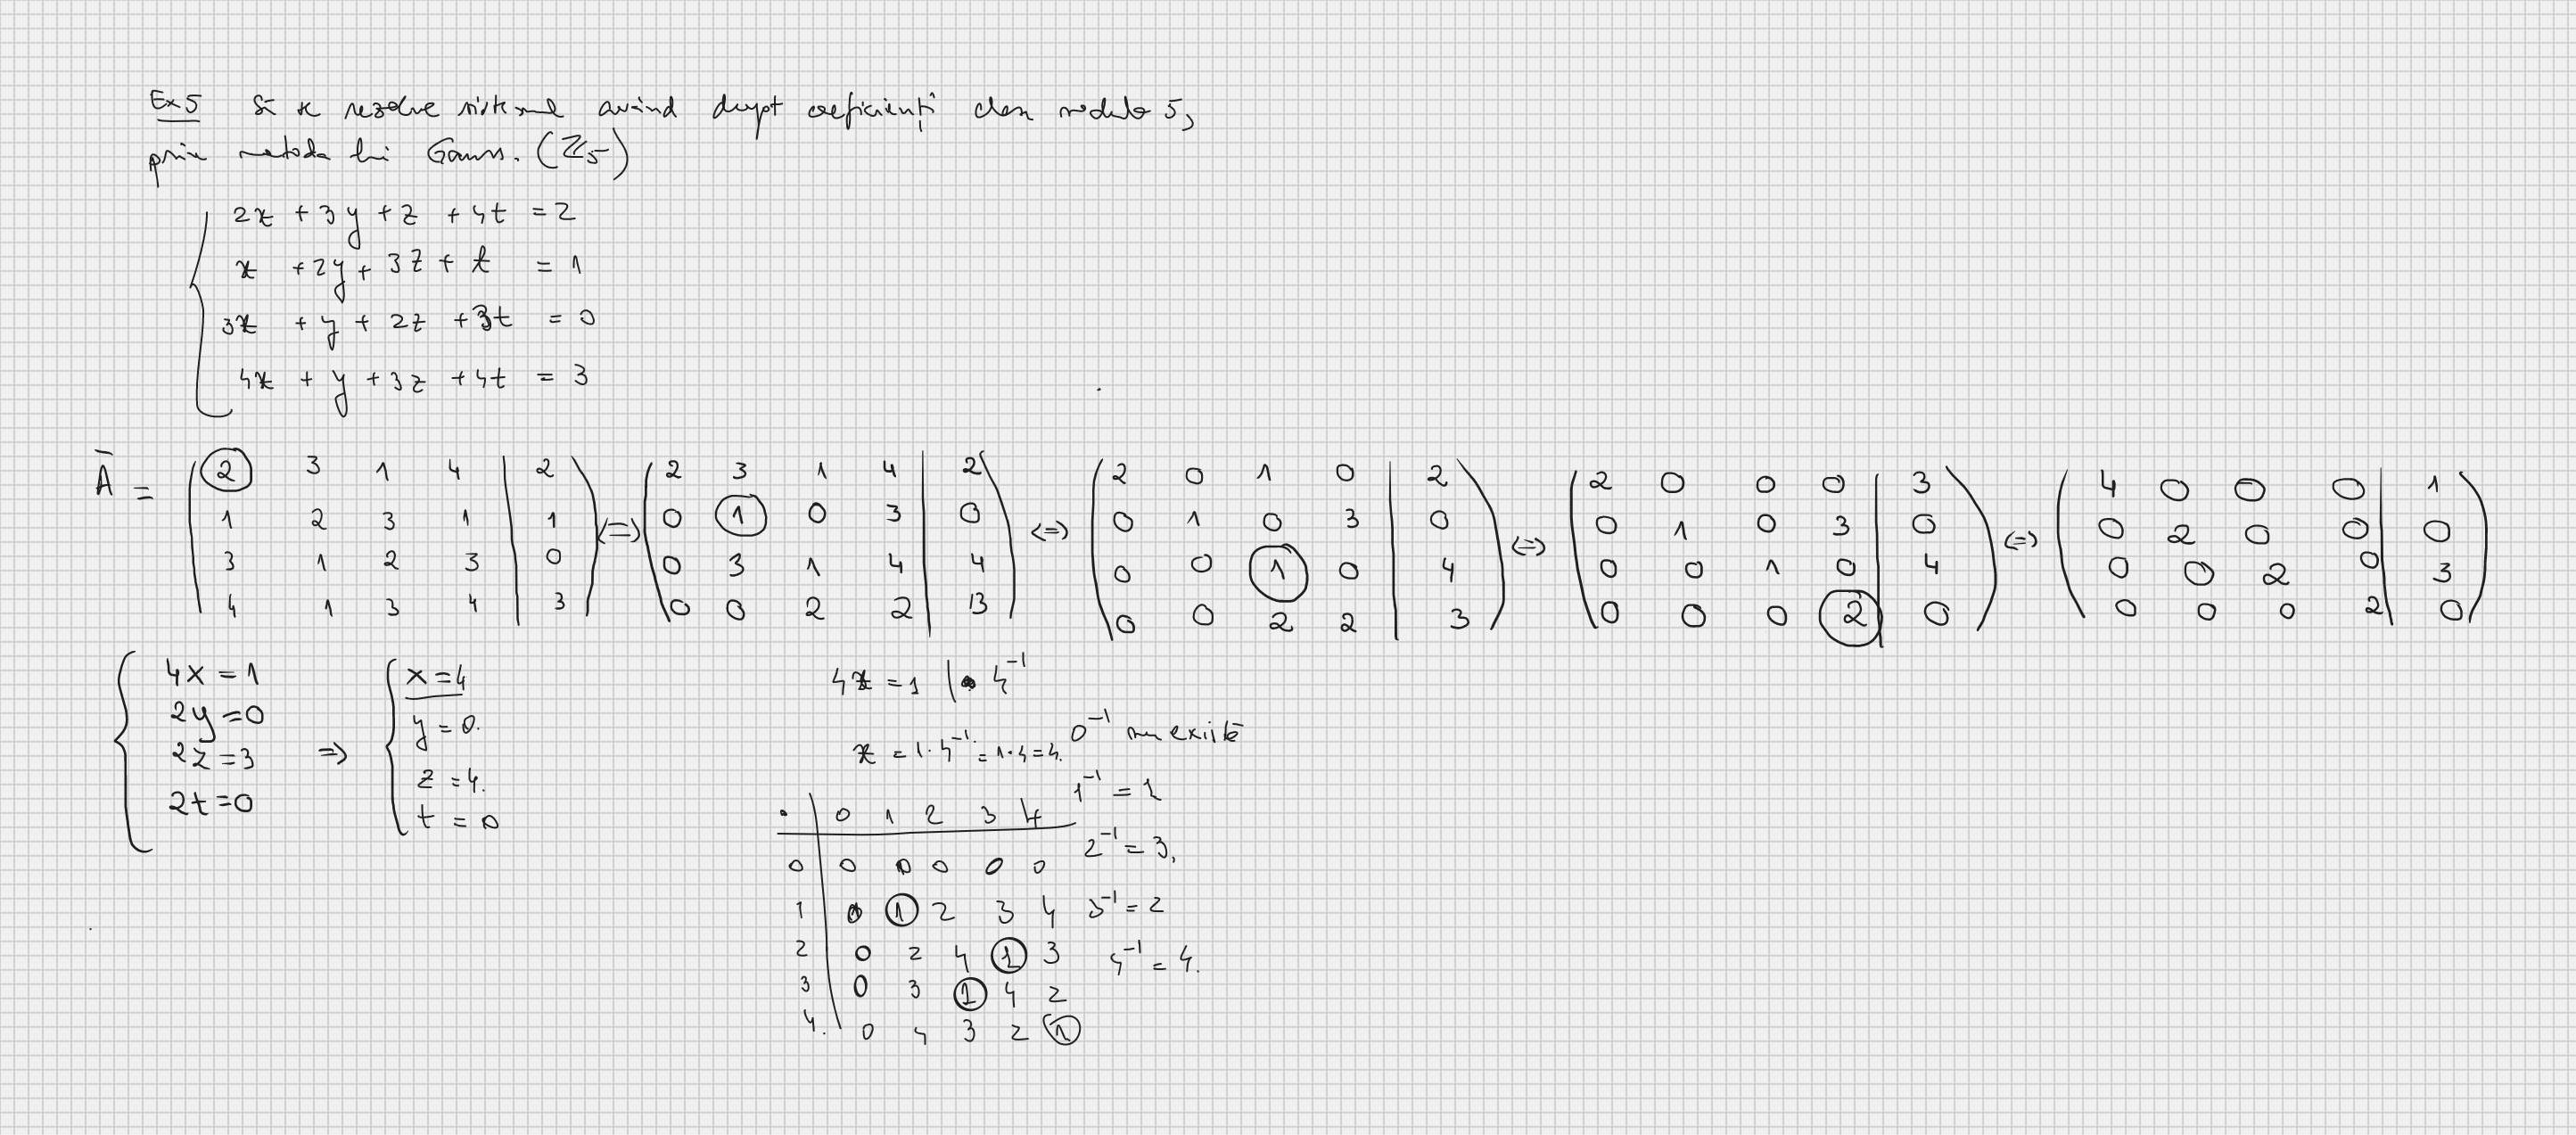 Ex 5 Să se rezolve sistemul având drept coeficienți clase modulo 5,
prin metoda lui Gauss. (ℤ₅)
2x + 3y + z + 4t = 2
x + 2y + 3z + t = 1
3x + y + 2z + 3t = 0
4x + y + 3z + 4t = 3
Ā = ( 2 3 1 4 | 2 ) <=> ( 2 3 1 4 | 2 ) <=> ( 2 0 1 0 | 2 ) <=> ( 2 0 0 0 | 3 ) <=> ( 4 0 0 0 | 1 )
1 2 3 1 | 1 0 1 0 3 | 0 0 1 0 3 | 0 0 1 0 3 | 0 0 2 0 0 | 0
3 1 2 3 | 0 0 3 1 4 | 4 0 0 1 0 | 4 0 0 1 0 | 4 0 0 2 0 | 3
4 1 3 4 | 3 0 0 2 2 | 13 0 0 2 2 | 3 0 0 0 2 | 0 0 0 0 2 | 0
4x = 1
2y = 0
2z = 3
2t = 0
=>
x = 4
y = 0.
z = 4.
t = 0
4x = 1 | · 4⁻¹
x = 1 · 4⁻¹ = 1 · 4 = 4.
0⁻¹ nu există
1⁻¹ = 1
2⁻¹ = 3,
3⁻¹ = 2
4⁻¹ = 4.
· | 0 1 2 3 4
0 | 0 0 0 0 0
1 | 0 1 2 3 4
2 | 0 2 4 1 3
3 | 0 3 1 4 2
4. | 0 4 3 2 1